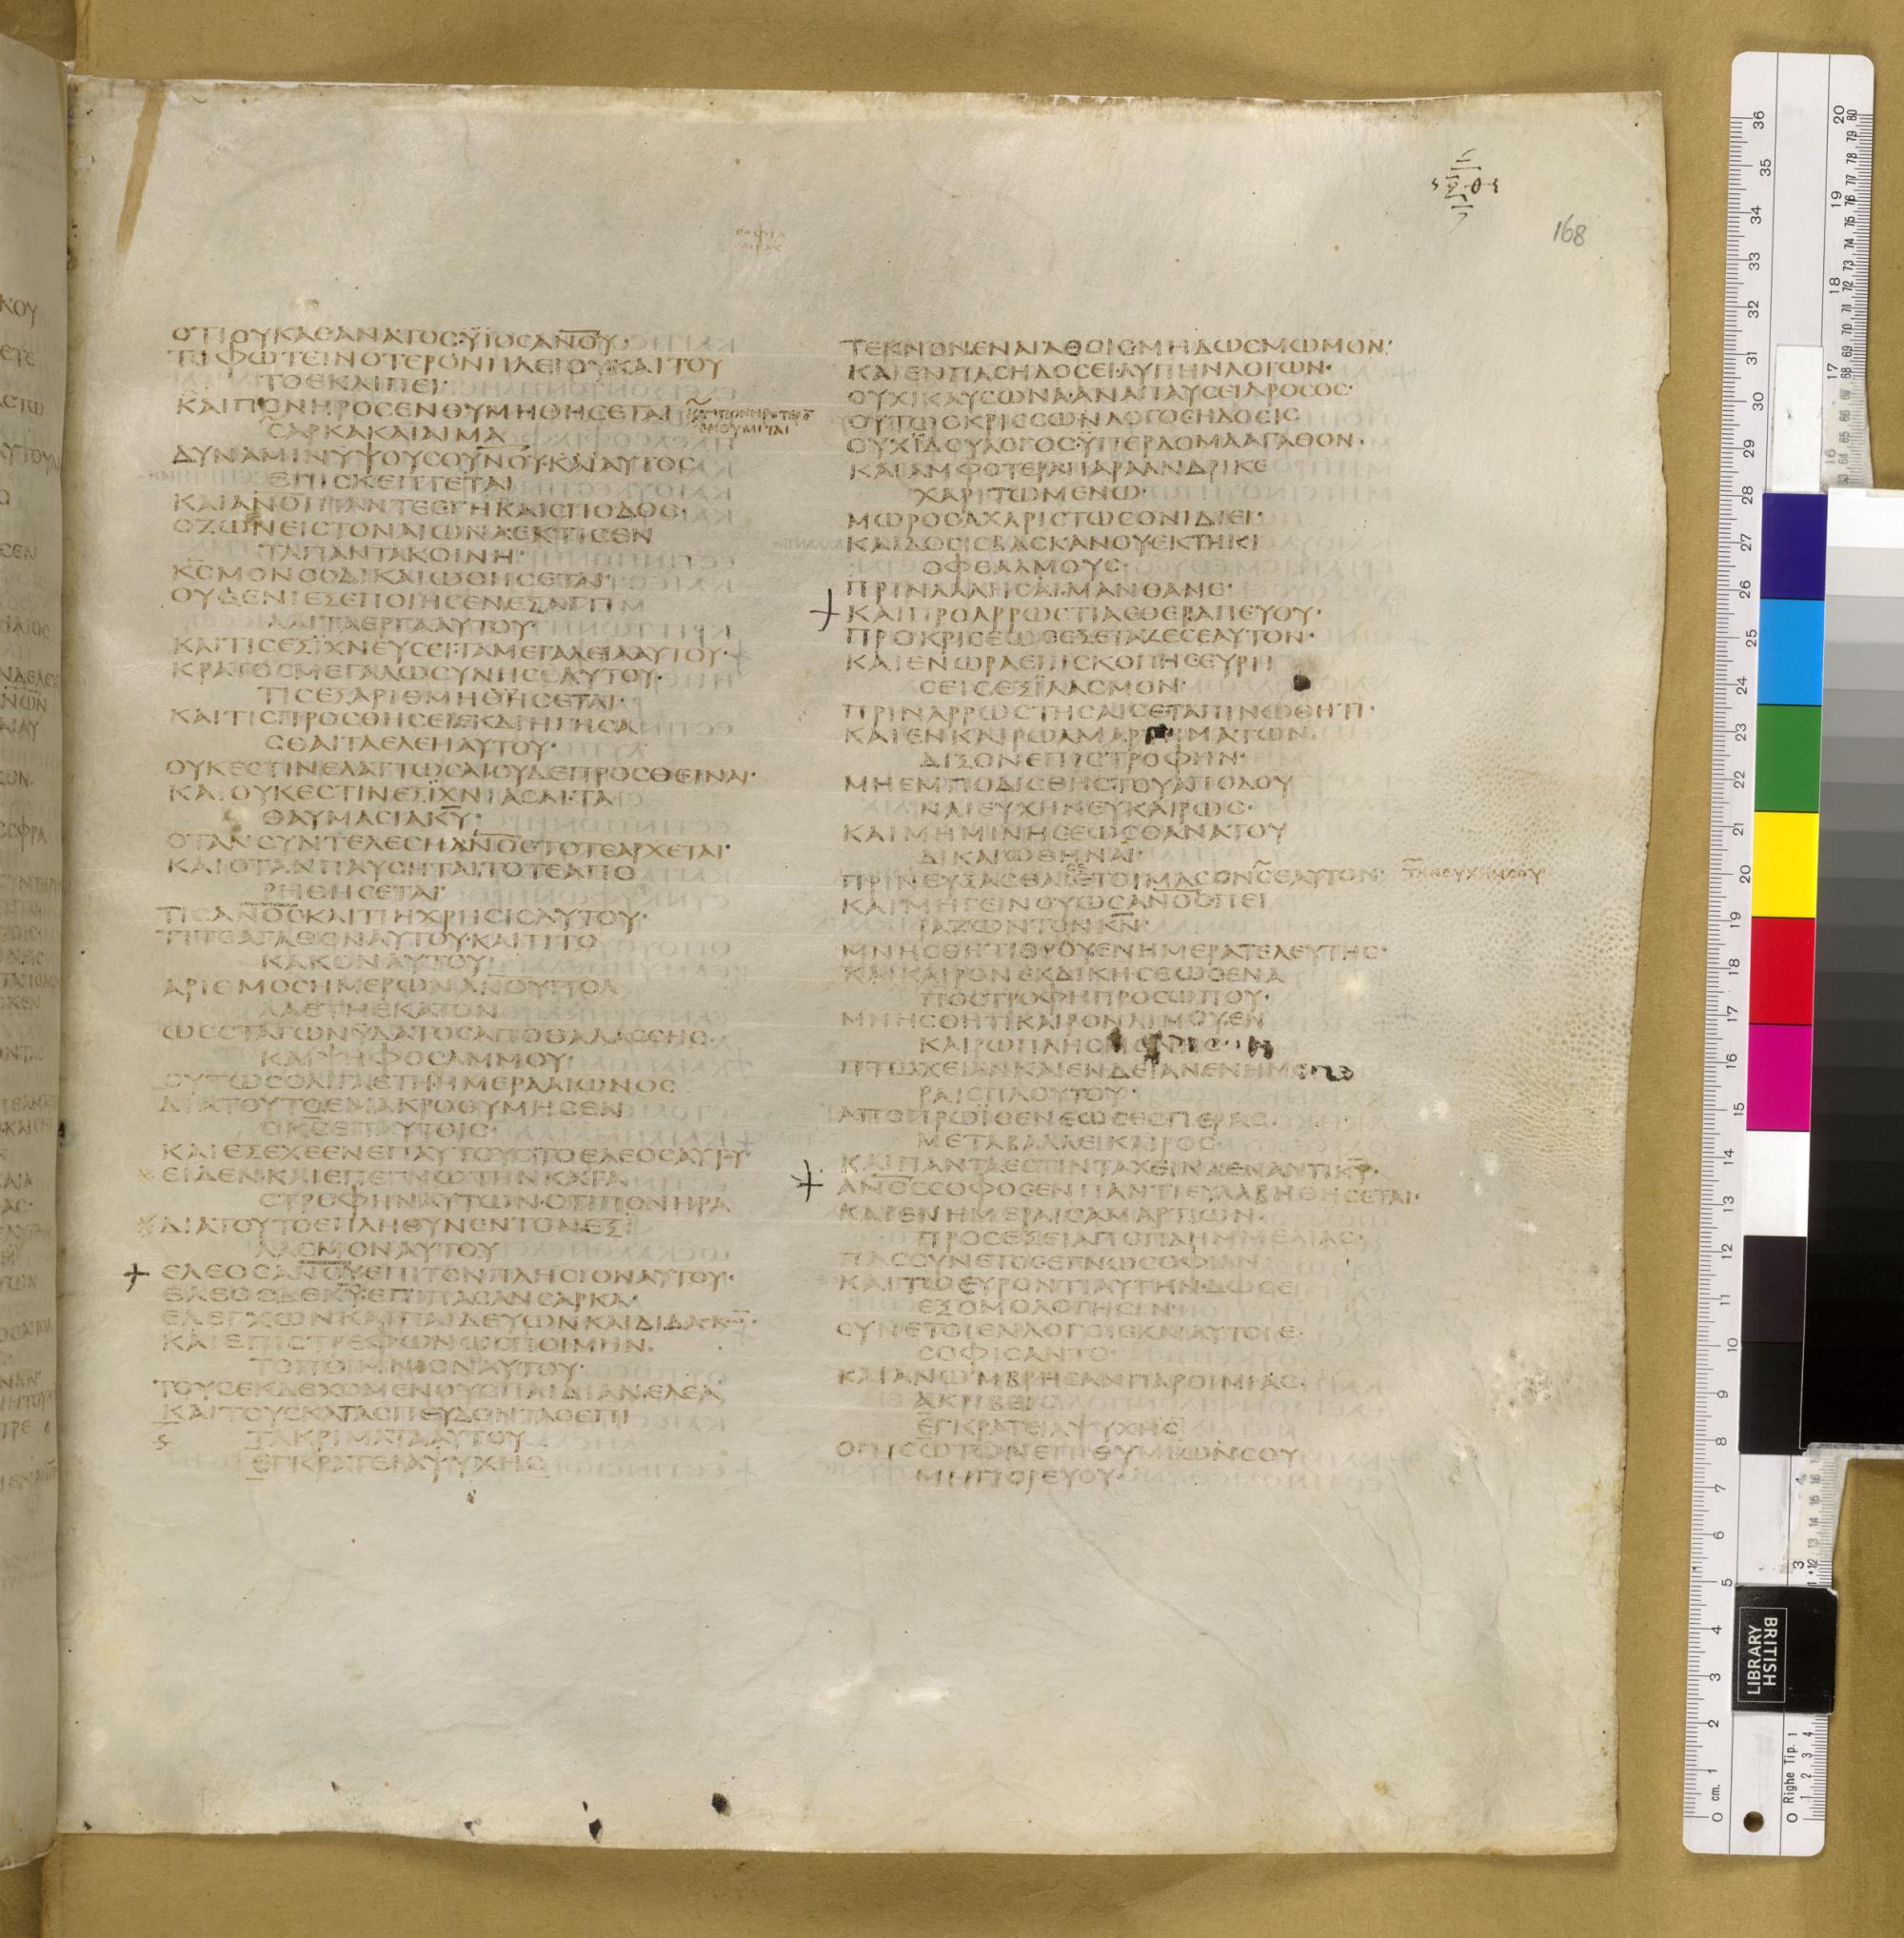 168
ϲοφια
ϲιραχ
ΟΤΙΟΥΚΑΘΑΝΑΤΟϹΥΪΟϹΑΝΟΥ
ΤΙΦΩΤΕΙΝΟΤΕΡΟΝΗΛΕΙΟΥΚΑΙΤΟΥ
ΤΟΕΚΛΙΠΕΙ
ΚΑΙΠΟΝΗΡΟϹΕΝΘΥΜΗΘΗϹΕΤΑΙ
ϹΑΡΚΑΚΑΙΑΙΜΑ
ΔΥΝΑΜΙΝΥΨΟΥϹΟΥΝΟΥΚΑΙΑΥΤΟϹ
ΕΠΙϹΚΕΠΤΕΤΑΙ
ΚΑΙΑΝΟΙΠΑΝΤΕϹΓΗΚΑΙϹΠΟΔΟϹ
ΟΖΩΝΕΙϹΤΟΝΑΙΩΝΑΕΚΤΙϹΕΝ
ΤΑΠΑΝΤΑΚΟΙΝΗ
ΚϹΜΟΝΟϹΔΙΚΑΙΩΘΗϹΕΤΑΙ
ΟΥΔΕΝΙΕΞΕΠΟΙΗϹΕΝΕΞΑΓΓΙ
ΛΑΙΤΑΕΡΓΑΑΥΤΟΥ
ΚΑΙΤΙϹΕΞΪΧΝΕΥϹΕΙΤΑΜΕΓΑΛΕΙΑΑΥΤΟΥ
ΚΡΑΤΟϹΜΕΓΑΛΩϹΥΝΗϹΑΥΤΟΥ
ΤΙϹΕΞΑΡΙΘΜΗΘΗϹΕΤΑΙ
ΚΑΙΤΙϹΠΡΟϹΘΗϹΕΙΕΚΔΙΗΓΗϹΑ
ϹΘΑΙΤΑΕΛΕΗΑΥΤΟΥ
ΟΥΚΕϹΤΙΝΕΛΑΤΤΩϹΑΙΟΥΔΕΠΡΟϹΘΕΙΝΑΙ
ΚΑΙΟΥΚΕϹΤΙΝΕΞΪΧΝΙΑϹΑΙΤΑ
ΘΑΥΜΑϹΙΑΚΥ
ΟΤΑΝϹΥΝΤΕΛΕϹΗΑΝΟϹΤΟΤΕΑΡΧΕΤΑΙ
ΚΑΙΟΤΑΝΠΑΥϹΗΤΑΙΤΟΤΕΑΠΟ
ΡΗΘΗϹΕΤΑΙ
ΤΙϹΑΝΟϹΚΑΙΤΙΗΧΡΗϹΙϹΑΥΤΟΥ
ΤΙΤΟΑΓΑΘΟΝΑΥΤΟΥΚΑΙΤΙΤΟ
ΚΑΚΟΝΑΥΤΟΥ
ΑΡΙΘΜΟϹΗΜΕΡΩΝΑΝΟΥΠΟΛ
ΛΑΕΤΗΕΚΑΤΟΝ
ΩϹϹΤΑΓΩΝΫΔΑΤΟϹΑΠΟΘΑΛΑϹϹΗϹ
ΚΑΙΨΗΦΟϹΑΜΜΟΥ
ΟΥΤΩϹΟΛΙΓΑΕΤΗΗΜΕΡΑΑΙΩΝΟϹ
ΔΙΑΤΟΥΤΟΕΜΑΚΡΟΘΥΜΗϹΕΝ
ΟΚϹΕΠΑΥΤΟΙϹ
ΚΑΙΕΞΕΧΕΕΝΕΠΑΥΤΟΥϹΤΟΕΛΕΟϹΑΥΤΟΥ
ΕΙΔΕΝΚΑΙΕΠΕΓΝΩΤΗΝΚΑΤΑ
ϹΤΡΟΦΗΝΑΥΤΩΝΟΤΙΠΟΝΗΡΑ
ΔΙΑΤΟΥΤΟΕΠΛΗΘΥΝΕΝΤΟΝΕΞΙ
ΛΑϹΜΟΝΑΥΤΟΥ
ΕΛΕΟϹΑΝΟΥΕΠΙΤΟΝΠΛΗϹΙΟΝΑΥΤΟΥ
ΕΛΕΟϹΔΕΚΥΕΠΙΠΑϹΑΝϹΑΡΚΑ
ΕΛΕΓΧΩΝΚΑΙΠΑΙΔΕΥΩΝΚΑΙΔΙΔΑϹΚΩ
ΚΑΙΕΠΙϹΤΡΕΦΩΝΩϹΠΟΙΜΗΝ
ΤΟΠΟΙΜΝΙΟΝΑΥΤΟΥ
ΤΟΥϹΕΚΔΕΧΟΜΕΝΟΥϹΠΑΙΔΙΑΝΕΛΕΑ
ΚΑΙΤΟΥϹΚΑΤΑϹΠΕΥΔΟΝΤΑϹΕΠΙ
ΤΑΚΡΙΜΑΤΑΑΥΤΟΥ
ΕΓΚΡΑΤΕΙΑΨΥΧΗϹ
ΤΕΚΝΟΝΕΝΑΓΑΘΟΙϹΜΗΔΩϹΜΩΜΟΝ
ΚΑΙΕΝΠΑϹΗΔΟϹΕΙΛΥΠΗΝΛΟΓΩΝ
ΟΥΧΙΚΑΥϹΩΝΑΑΝΑΠΑΥϹΕΙΔΡΟϹΟϹ
ΟΥΤΩϹΚΡΙϹϹΩΝΛΟΓΟϹΗΔΟϹΙϹ
ΟΥΧΪΔΟΥΛΟΓΟϹΫΠΕΡΔΟΜΑΑΓΑΘΟΝ
ΚΑΙΑΜΦΟΤΕΡΑΠΑΡΑΑΝΔΡΙΚΕ
ΧΑΡΙΤΩΜΕΝΩ
ΜΩΡΟϹΑΧΑΡΙϹΤΩϹΟΝΙΔΙΕΙ
ΚΑΙΔΟϹΙϹΒΑϹΚΑΝΟΥΕΚΤΗΚΙ
ΟΦΘΑΛΜΟΥϹ
ΠΡΙΝΛΑΛΗϹΑΙΜΑΝΘΑΝΕ
ΚΑΙΠΡΟΑΡΡΩϹΤΙΑϹΘΕΡΑΠΕΥΟΥ
ΠΡΟΚΡΙϹΕΩϹΕΞΕΤΑΖΕϹΕΑΥΤΟΝ
ΚΑΙΕΝΩΡΑΕΠΙϹΚΟΠΗϹΕΥΡΗ
ϹΕΙϹΕΞΪΛΑϹΜΟΝ
ΠΡΙΝΑΡΡΩϹΤΗϹΑΙϹΕΤΑΠΙΝΩΘΗΤΙ
ΚΑΙΕΝΚΑΙΡΩΑΜΑΡΤΗΜΑΤΩΝ
ΔΙΞΟΝΕΠΙϹΤΡΟΦΗΝ
ΜΗΕΜΠΟΔΙϹΘΗϹΤΟΥΑΠΟΔΟΥ
ΝΑΙΕΥΧΗΝΕΥΚΑΙΡΩϹ
ΚΑΙΜΗΜΙΝΗϹΕΩϹΘΑΝΑΤΟΥ
ΔΙΚΑΙΩΘΗΝΑΙ
ΠΡΙΝΕΥΞΑϹΘΑΙϹΕΕΤΟΙΜΑϹΟΝϹΕΑΥΤΟΝ ΤΗΝΕΥΧΗΝϹΟΥ
ΚΑΙΜΗΓΕΙΝΟΥΩϹΑΝΟϹΠΕΙ
ΡΑΖΩΝΤΟΝΚΝ
ΜΝΗϹΘΗΤΙΘΥΜΟΥΕΝΗΜΕΡΑΤΕΛΕΥΤΗϹ
ΚΑΙΚΑΙΡΟΝΕΚΔΙΚΗϹΕΩϹΕΝΑ
ΠΟϹΤΡΟΦΗΠΡΟϹΩΠΟΥ
ΜΝΗϹΘΗΤΙΚΑΙΡΟΝΛΙΜΟΥΕΝ
ΚΑΙΡΩΠΛΗϹΜΟΝΗϹ
ΠΤΩΧΕΙΑΝΚΑΙΕΝΔΕΙΑΝΕΝΗΜΕ
ΡΑΙϹΠΛΟΥΤΟΥ
ΑΠΟΠΡΩΪΘΕΝΕΩϹΕϹΠΕΡΑϹ
ΜΕΤΑΒΑΛΛΕΙΚΑΙΡΟϹ
ΚΑΙΠΑΝΤΑΕϹΤΙΝΤΑΧΕΙΝΑΕΝΑΝΤΙΚΥ
ΑΝΟϹϹΟΦΟϹΕΝΠΑΝΤΙΕΥΛΑΒΗΘΗϹΕΤΑΙ
ΚΑΙΕΝΗΜΕΡΑΙϹΑΜΑΡΤΙΩΝ
ΠΡΟϹΕΞΕΙΑΠΟΠΛΗΜΜΕΛΙΑϹ
ΠΑϹϹΥΝΕΤΟϹΕΓΝΩϹΟΦΙΑΝ
ΚΑΙΤΩΕΥΡΟΝΤΙΑΥΤΗΝΔΩϹΕΙ
ΕΞΟΜΟΛΟΓΗϹΙΝ
ϹΥΝΕΤΟΙΕΝΛΟΓΟΙϹΚΑΙΑΥΤΟΙΕ
ϹΟΦΙϹΑΝΤΟ
ΚΑΙΑΝΩΜΒΡΗϹΑΝΠΑΡΟΙΜΙΑϹ
ΑΚΡΙΒΕΙϹ
ΕΓΚΡΑΤΕΙΑΨΥΧΗϹ
ΟΠΙϹΩΤΩΝΕΠΙΘΥΜΙΩΝϹΟΥ
ΜΗΠΟΡΕΥΟΥ
BRITISH
LIBRARY